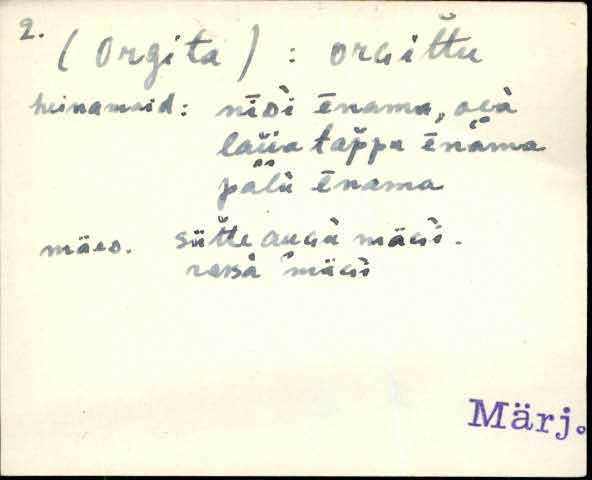 2.
(Orgita) : orGit̆tu
heinamaid: nīDì ēnama, oGà
laüa tap̆pu ēnäma
pälù ēnama
mäed. süt̆te auGù mäGì.
ressà mäGì
Märj.